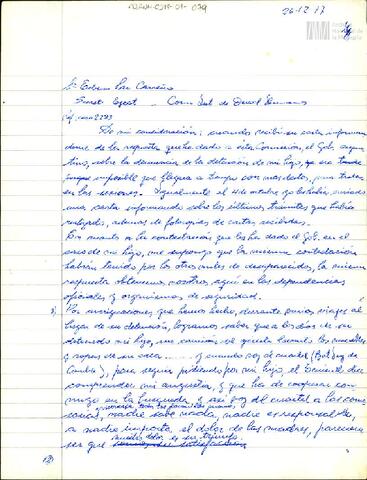 26-12-77
Sr. Edmundo Vargas Carreño
Secret. Eject. Com. Int. de Derech. Humanos
Ref. caso 2273
De mi consideración; acuso recibo su carta informan
dome de la respuesta que ha dado a esa Comisión, el Gob. argen
tino, sobre la denuncia de la detención de mi hijo,
imposible que llegue a tiempo con más datos, para tratar
en las sesiones. Igualmente el 4 de octubre ya les había enviado
una carta informando sobre los últimos trámites que había
realizado, además de fotocopias de cartas recibidas.
En cuanto a la contestación que les ha dado el Gob. en el
caso de mi hijo, me supongo que la misma contestación
habrán tenido por los otros miles de desaparecidos, la misma
respuesta obtenemos nosotros, aquí en las dependencias
oficiales y organismos de seguridad.
Por averiguaciones que hemos hecho, durante varios viajes al
lugar de su detención, logramos saber que a los días de ser
detenido mi hijo, un camión del ejército levantó los muebles
y ropas de su casa y cuando voy al cuartel
para seguir pidiendo por mi hijo el Teniente dice
comprender mi angustia, y que ha de cooperar con
migo en la búsqueda, y así voy del cuartel a las comi
sarías, nadie sabe nada, nadie es responsable,
a nadie importa el dolor de las madres, pareciera
ser que